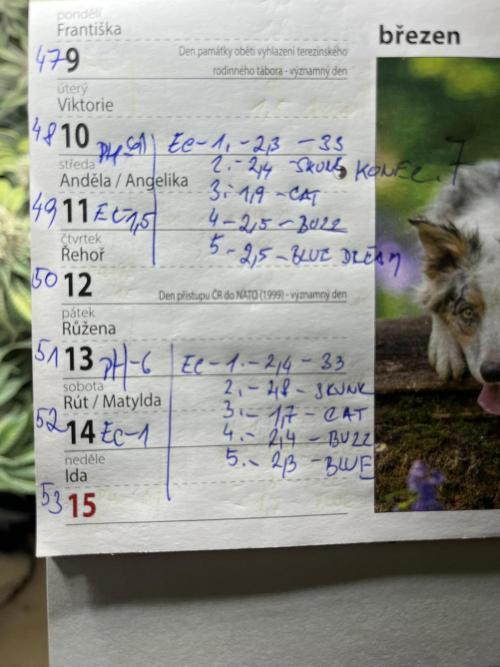 pondělí
Františka
březen
47 9 Den památky obětí vyhlazení terezínského
rodinného tábora - významný den
úterý
Viktorie
48 10 EC-1.-2,3 -33
středa 2.-2,4 -SKUNK KONEC.7
Anděla / Angelika 3.-1,9 -CAT
49 11 EC-1,5 4-2,5-BUZZ
čtvrtek 5-2,5-BLUE DREAM
Řehoř
50 12 Den přístupu ČR do NATO (1999) - významný den
pátek
Růžena
51 13 pH-6 EC-1.-2,4-33
sobota 2.-2,8-SKUNK
Rút / Matylda 3.-1,7-CAT
52 14 EC-1 4.-2,4-BUZZ
neděle 5.-2,3-BLUE
Ida
53 15